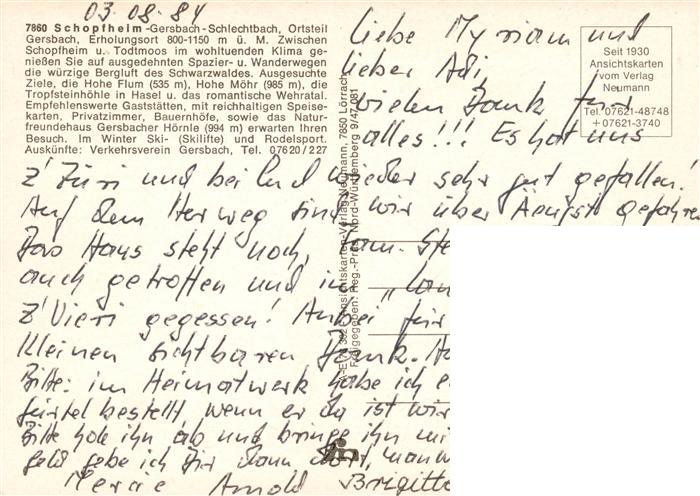 03.08.84
7860 Schopfheim-Gersbach-Schlechtbach, Ortsteil
Gersbach, Erholungsort 800-1150 m ü. M. Zwischen
Schopfheim u. Todtmoos im wohltuenden Klima ge-
nießen Sie auf ausgedehnten Spazier- u. Wanderwegen
die würzige Bergluft des Schwarzwaldes. Ausgesuchte
Ziele, die Hohe Flum (535 m), Hohe Möhr (985 m), die
Tropfsteinhöhle in Hasel u. das romantische Wehratal.
Empfehlenswerte Gaststätten, mit reichhaltigen Speise-
karten, Privatzimmer, Bauernhöfe, sowie das Natur-
freundehaus Gersbacher Hörnle (994 m) erwarten Ihren
Besuch. Im Winter Ski- (Skilifte) und Rodelsport.
Auskünfte: Verkehrsverein Gersbach, Tel. 07620/227
Seit 1930
Ansichtskarten
vom Verlag
Neumann
Tel. 07621-48748
+ 07621-3740
Ansichtskarten-Verlag Neumann, 7850 Lörrach
Freigegeben: Reg.-Präs. Nord-Württemberg 9/47 081
Liebe Myriam und
lieber Adi,
vielen Dank für
alles!!! Es hat uns
z'Züri und bei Euch wieder sehr gut gefallen!
Auf dem Herweg sind wir über Äeugst gefahren
Das Haus steht noch, Fam. Ste
auch getroffen und im
z'Vieri gegessen! Anbei für
kleinen sichtbaren Dank.
Bitte: im Heimatwerk habe ich
gürtel bestellt, wenn er da ist wir
Bitte hole ihn ab und bringe ihn mi
geld gebe ich Dir dann dort,
Mercie Arnold Brigitte